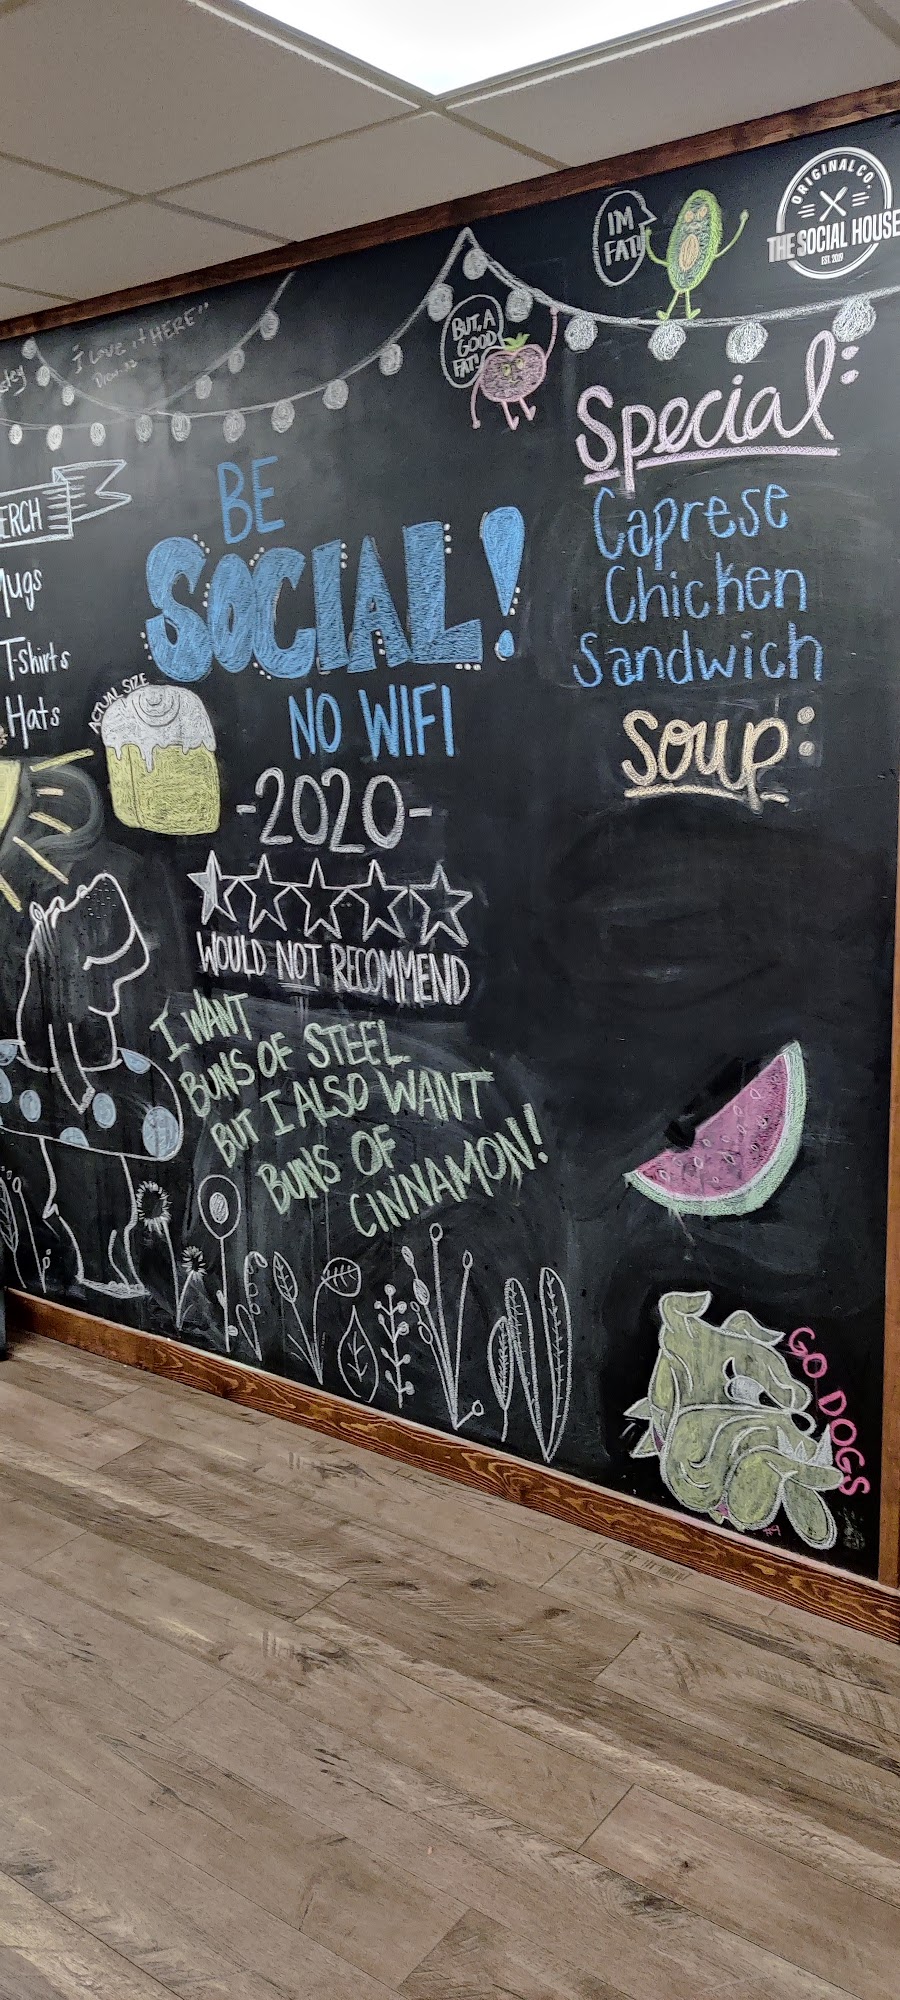 ORIGINAL CO.
THE SOCIAL HOUSE
EST. 2019
I'M
FAT!
BUT, A
GOOD
FAT!
I Love it HERE"
MERCH
Mugs
T-Shirts
Hats
ACTUAL SIZE
BE
SOCIAL!
NO WIFI
-2020-
WOULD NOT RECOMMEND
I WANT
BUNS OF STEEL
BUT I ALSO WANT
BUNS OF
CINNAMON!
Special:
Caprese
Chicken
Sandwich
Soup:
GO DOGS
#4